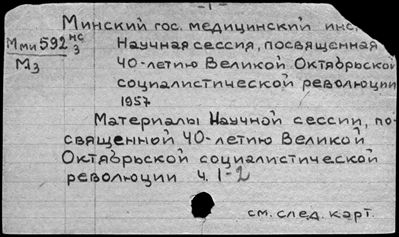 -1-
Минский гос. медицинский инс.
Мми592 нс 3
М3
Научная сессия, посвященная
40-летию Великой Октябрьской
социалистической революции
1957
Материалы Научной сессии, по-
священной 40-летию Великой
Октябрьской социалистической
революции ч. 1-2
см. след. карт.